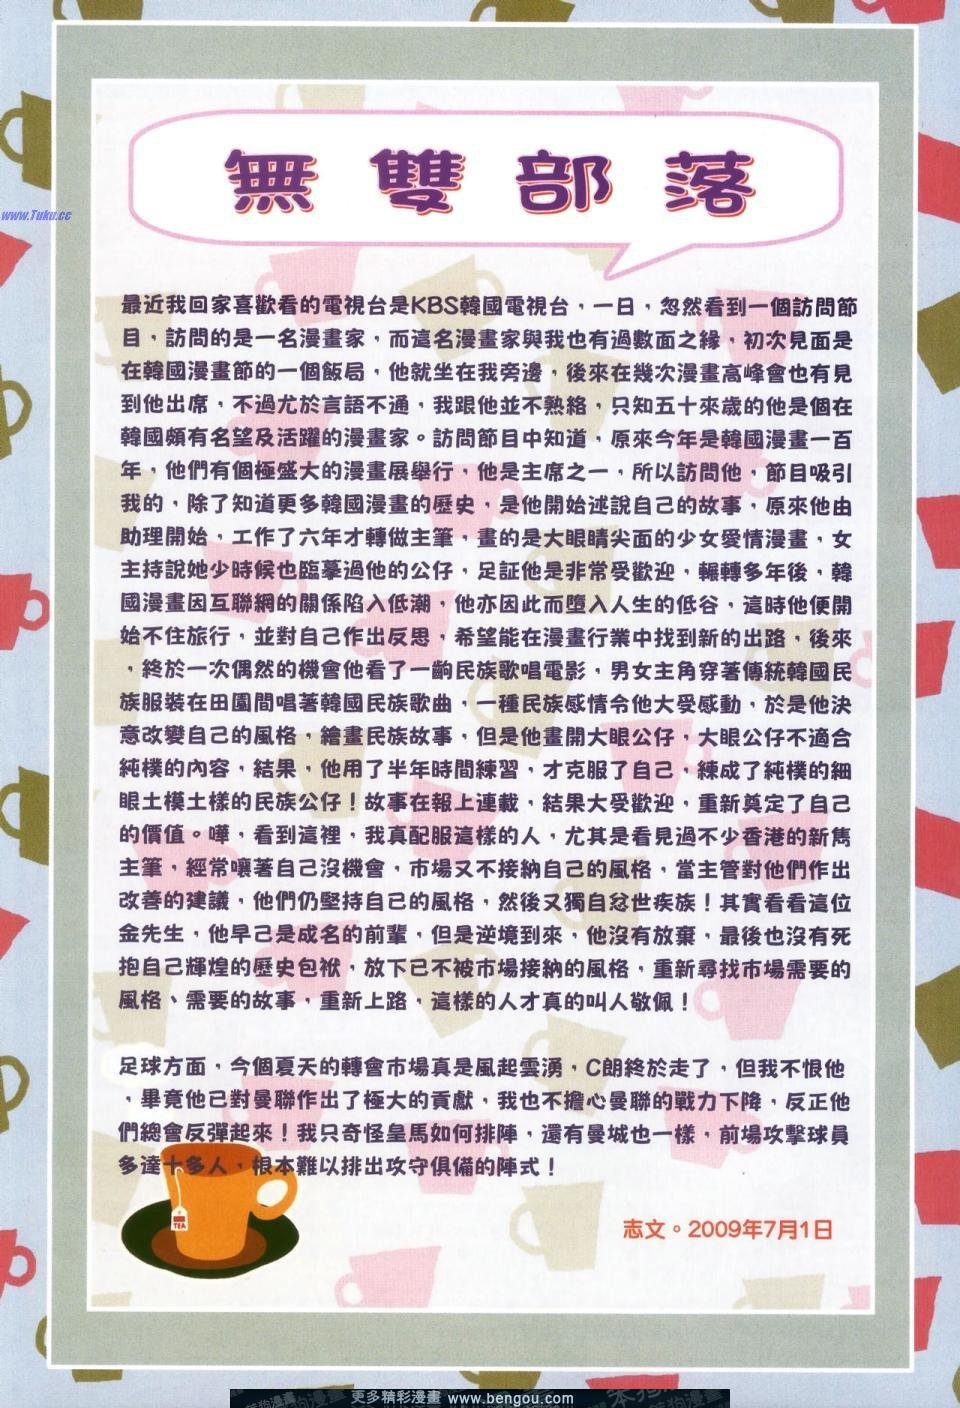 無雙部落
www.Tuku.cc
最近我回家喜歡看的電視台是KBS韓國電視台，一日，忽然看到一個訪問節
目，訪問的是一名漫畫家，而這名漫畫家與我也有過數面之緣，初次見面是
在韓國漫畫節的一個飯局，他就坐在我旁邊，後來在幾次漫畫高峰會也有見
到他出席，不過尤於言語不通，我跟他並不熟絡，只知五十來歲的他是個在
韓國頗有名望及活躍的漫畫家。訪問節目中知道，原來今年是韓國漫畫一百
年，他們有個極盛大的漫畫展舉行，他是主席之一，所以訪問他，節目吸引
我的，除了知道更多韓國漫畫的歷史，是他開始述說自己的故事，原來他由
助理開始，工作了六年才轉做主筆，畫的是大眼睛尖面的少女愛情漫畫，女
主持說她少時候也臨摹過他的公仔，足証他是非常受歡迎，輾轉多年後，韓
國漫畫因互聯網的關係陷入低潮，他亦因此而墮入人生的低谷，這時他便開
始不住旅行，並對自己作出反思，希望能在漫畫行業中找到新的出路，後來
，終於一次偶然的機會他看了一齣民族歌唱電影，男女主角穿著傳統韓國民
族服裝在田園間唱著韓國民族歌曲，一種民族感情令他大受感動，於是他決
意改變自己的風格，繪畫民族故事，但是他畫開大眼公仔，大眼公仔不適合
純樸的內容，結果，他用了半年時間練習，才克服了自己，練成了純樸的細
眼土模土樣的民族公仔！故事在報上連載，結果大受歡迎，重新奠定了自己
的價值。嘩，看到這裡，我真配服這樣的人，尤其是看見過不少香港的新雋
主筆，經常嚷著自己沒機會，市場又不接納自己的風格，當主管對他們作出
改善的建議，他們仍堅持自已的風格，然後又獨自忿世疾族！其實看看這位
金先生，他早己是成名的前輩，但是逆境到來，他沒有放棄，最後也沒有死
抱自己輝煌的歷史包袱，放下已不被市場接納的風格，重新尋找市場需要的
風格、需要的故事，重新上路，這樣的人才真的叫人敬佩！
足球方面，今個夏天的轉會市場真是風起雲湧，C朗終於走了，但我不恨他
，畢竟他己對曼聯作出了極大的貢獻，我也不擔心曼聯的戰力下降，反正他
們總會反彈起來！我只奇怪皇馬如何排陣，還有曼城也一樣，前場攻擊球員
多達十多人，根本難以排出攻守俱備的陣式！
TEA
志文。2009年7月1日
更多精彩漫畫 www.bengou.com